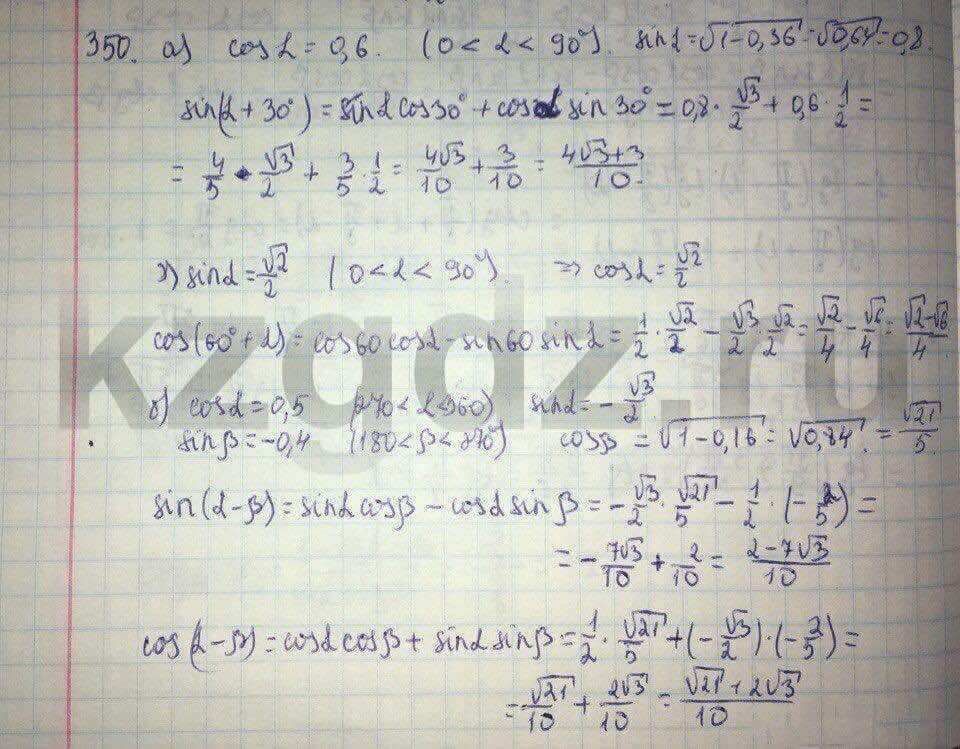 350. а) cosα = 0,6. (0 < α < 90°). sinα = √(1-0,36) = √0,64 = 0,8.
sin(α + 30°) = sinα cos30° + cosα sin 30° = 0,8 · √3/2 + 0,6 · 1/2 =
= 4/5 · √3/2 + 3/5 · 1/2 = 4√3/10 + 3/10 = (4√3+3)/10.
sinα = √2/2 (0 < α < 90°). => cosα = √2/2
cos(60° + α) = cos60 cosα - sin60 sinα = 1/2 · √2/2 - √3/2 · √2/2 = √2/4 - √6/4 = (√2-√6)/4
cosα = 0,5 (270 < α < 360) sinα = -√3/2
sinβ = -0,4 (180 < β < 270°) cosβ = √(1-0,16) = √0,84. = √21/5.
sin(α-β) = sinα cosβ - cosα sinβ = -√3/2 · √21/5 - 1/2 · (-2/5) =
= -7√3/10 + 2/10 = (2-7√3)/10
cos(α-β) = cosα cosβ + sinα sinβ = 1/2 · √21/5 + (-√3/2) · (-2/5) =
= √21/10 + 2√3/10 = (√21+2√3)/10
kzgdz.ru